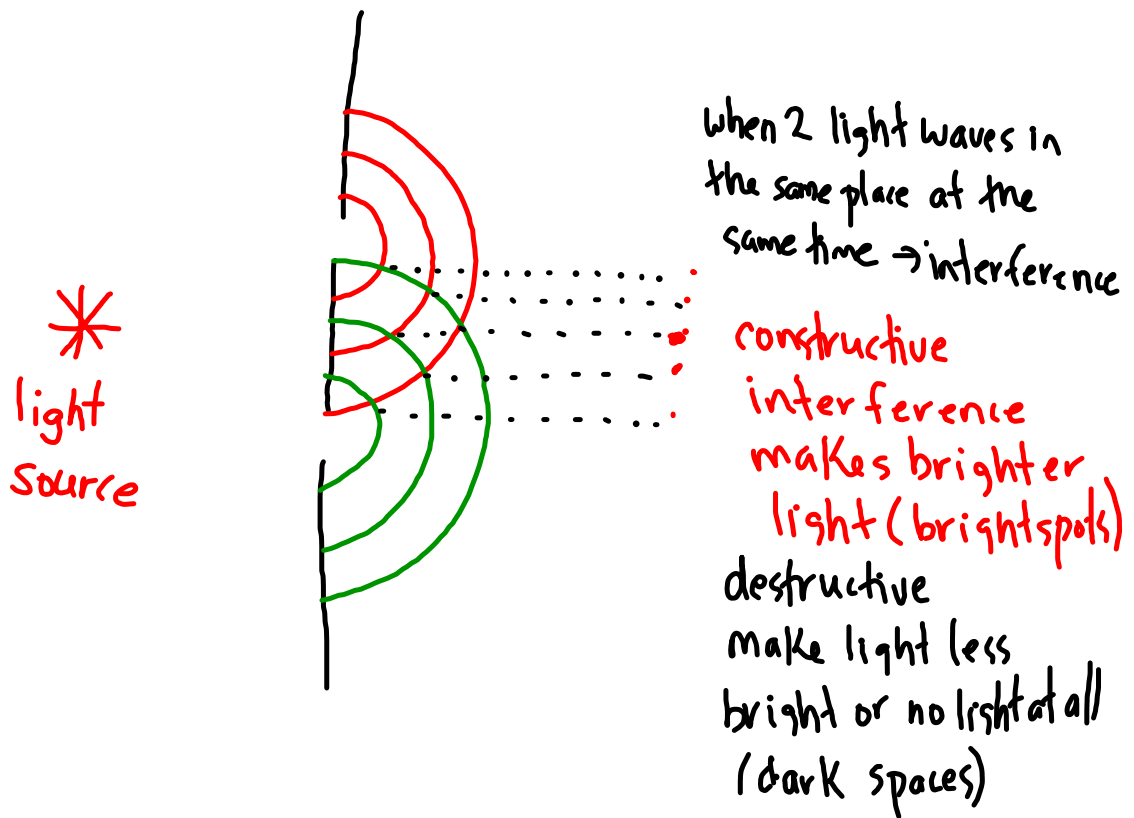 light
source
when 2 light waves in
the same place at the
same time → interference
constructive
interference
makes brighter
light (bright spots)
destructive
make light less
bright or no light at all
(dark spaces)